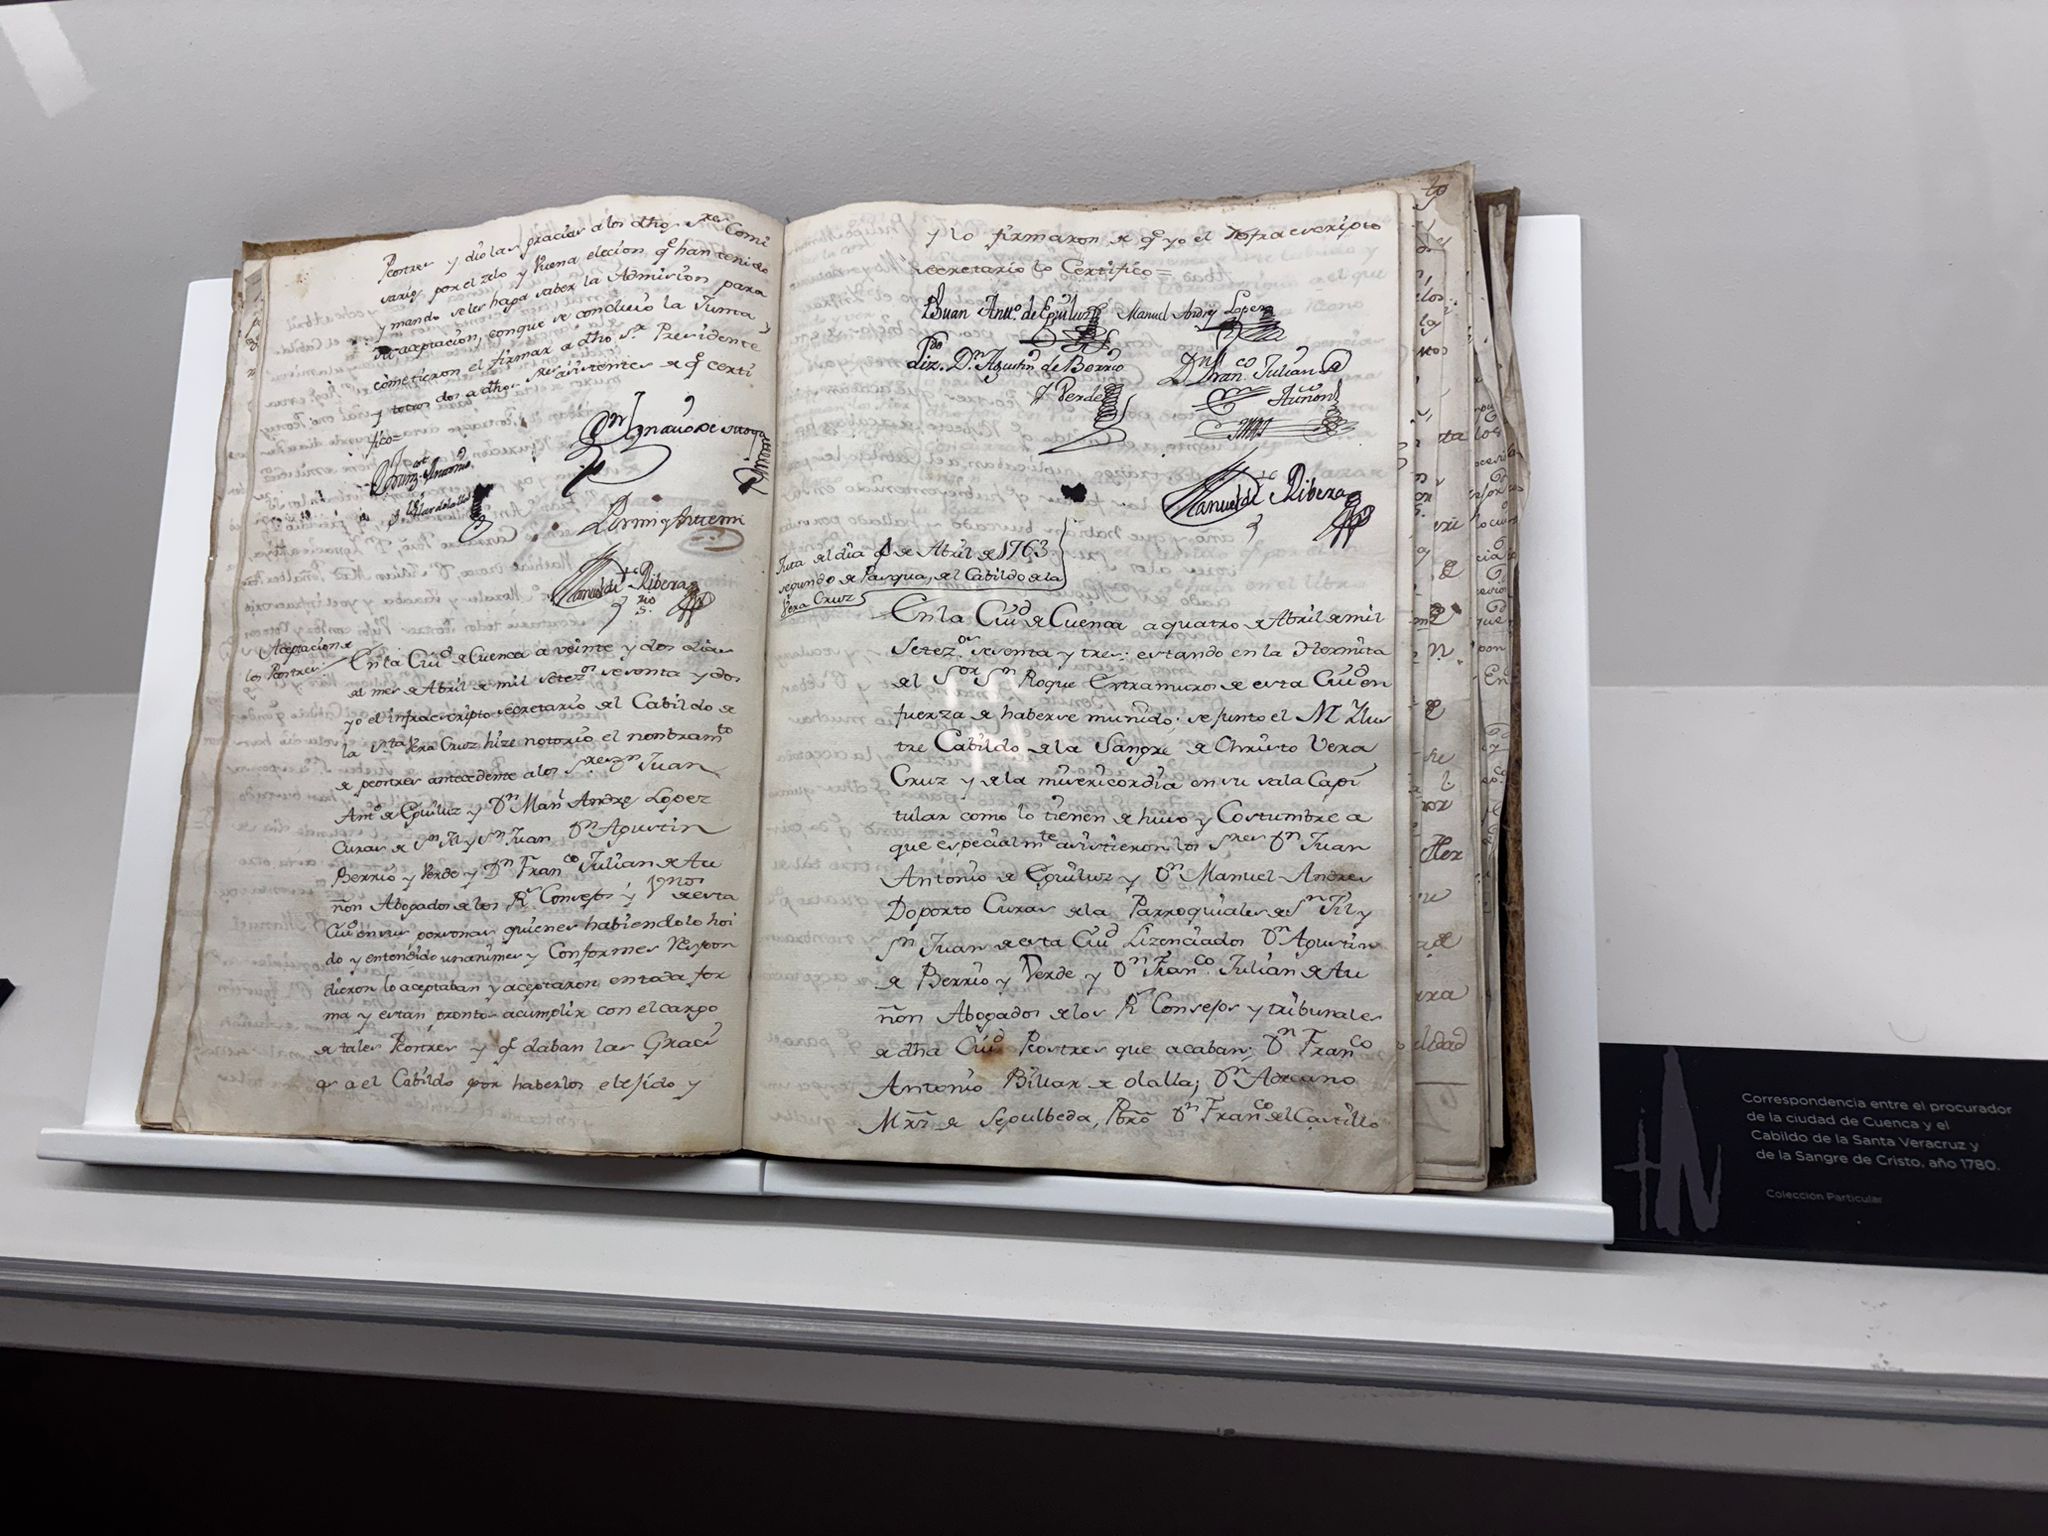 Peostres y dio las gracias a los dhos Sres Comi
sarios por el zelo y buena elecion, qe han tenido
y mando se les haga saber la Admision para
su aceptacion, con que se concluio la Junta y
cometieron el firmar a dho Sr Presidente
y totros dos a dhos Sres asistentes de qe certi
fico=
Dn Ignacio de
Manuel de Ribera
Srio
Aceptacion de
los Peostres
En la Ciud de Cuenca a veinte y dos dias
del mes de Abril de mil setezos sesenta y dos
yo el infraescripto secretario del Cabildo de
la Sta Vera Cruz hize notorio el nonbramto
de peostres antecedente a los Sres Dn Juan
Anto de Eguiluz y Dn Manl Andres Lopez
Curas de Sn Jil y Sn Juan Dn Agustin
Berrio y Verde y Dn Franco Julian de Au
ñon Abogados de los Rs Consejos y Vznos de esta
Ciud en sus personas quienes habiendolo hoi
do y entendido unanimes y Conformes Respon
dieron lo aceptaban y aceptaron en toda for
ma y estan pronto a cumplir con el cargo
de tales Peostres y qe daban las Graci
as a el Cabildo por haberlos elejido y
y lo firmaron de qe yo el Infraescripto
secretario lo Certifico=
Juan Anto. de Eguiluz Manuel Andres Lopez
Lizdo. Dn. Agustin de Berrio
y Verde
Dn Franco Julian de
Auñon
Manuel de Ribera
Juta del dia 4 de Abril de 1763
segundo de Pasqua, del Cabildo de la
Vera Cruz
En la Ciud de Cuenca a quatro de Abril de mil
Setezos. sesenta y tres: estando en la Hermita
del Sor Sn Roque Extramuros de esta Ciud en
fuerza de haberse munido; se junto el M Ilus
tre Cabildo de la Sangre de Christo Vera
Cruz y de la misericordia en su sala Capi
tular como lo tienen de huso y Costumbre a
que especialmte asistieron los Sres Dn Juan
Antonio de Eguiluz y Dn Manuel Andres
Doporto Curas de la Parroquiales de Sn Jil y
Sn Juan de esta Ciud Lizenciados Dn Agustin
de Berrio y Verde y Dn Franco. Julian de Au
ñon Abogados de los Rs Consejos y tribunales
de dha Ciud Peostres que acaban; Dn Franco
Antonio Billar de olalla; Dn Adriano
Mrz de Sepulbeda, Pbro Dn Franco del Castillo
Correspondencia entre el procurador
de la ciudad de Cuenca y el
Cabildo de la Santa Veracruz y
de la Sangre de Cristo, año 1780.
Colección Particular